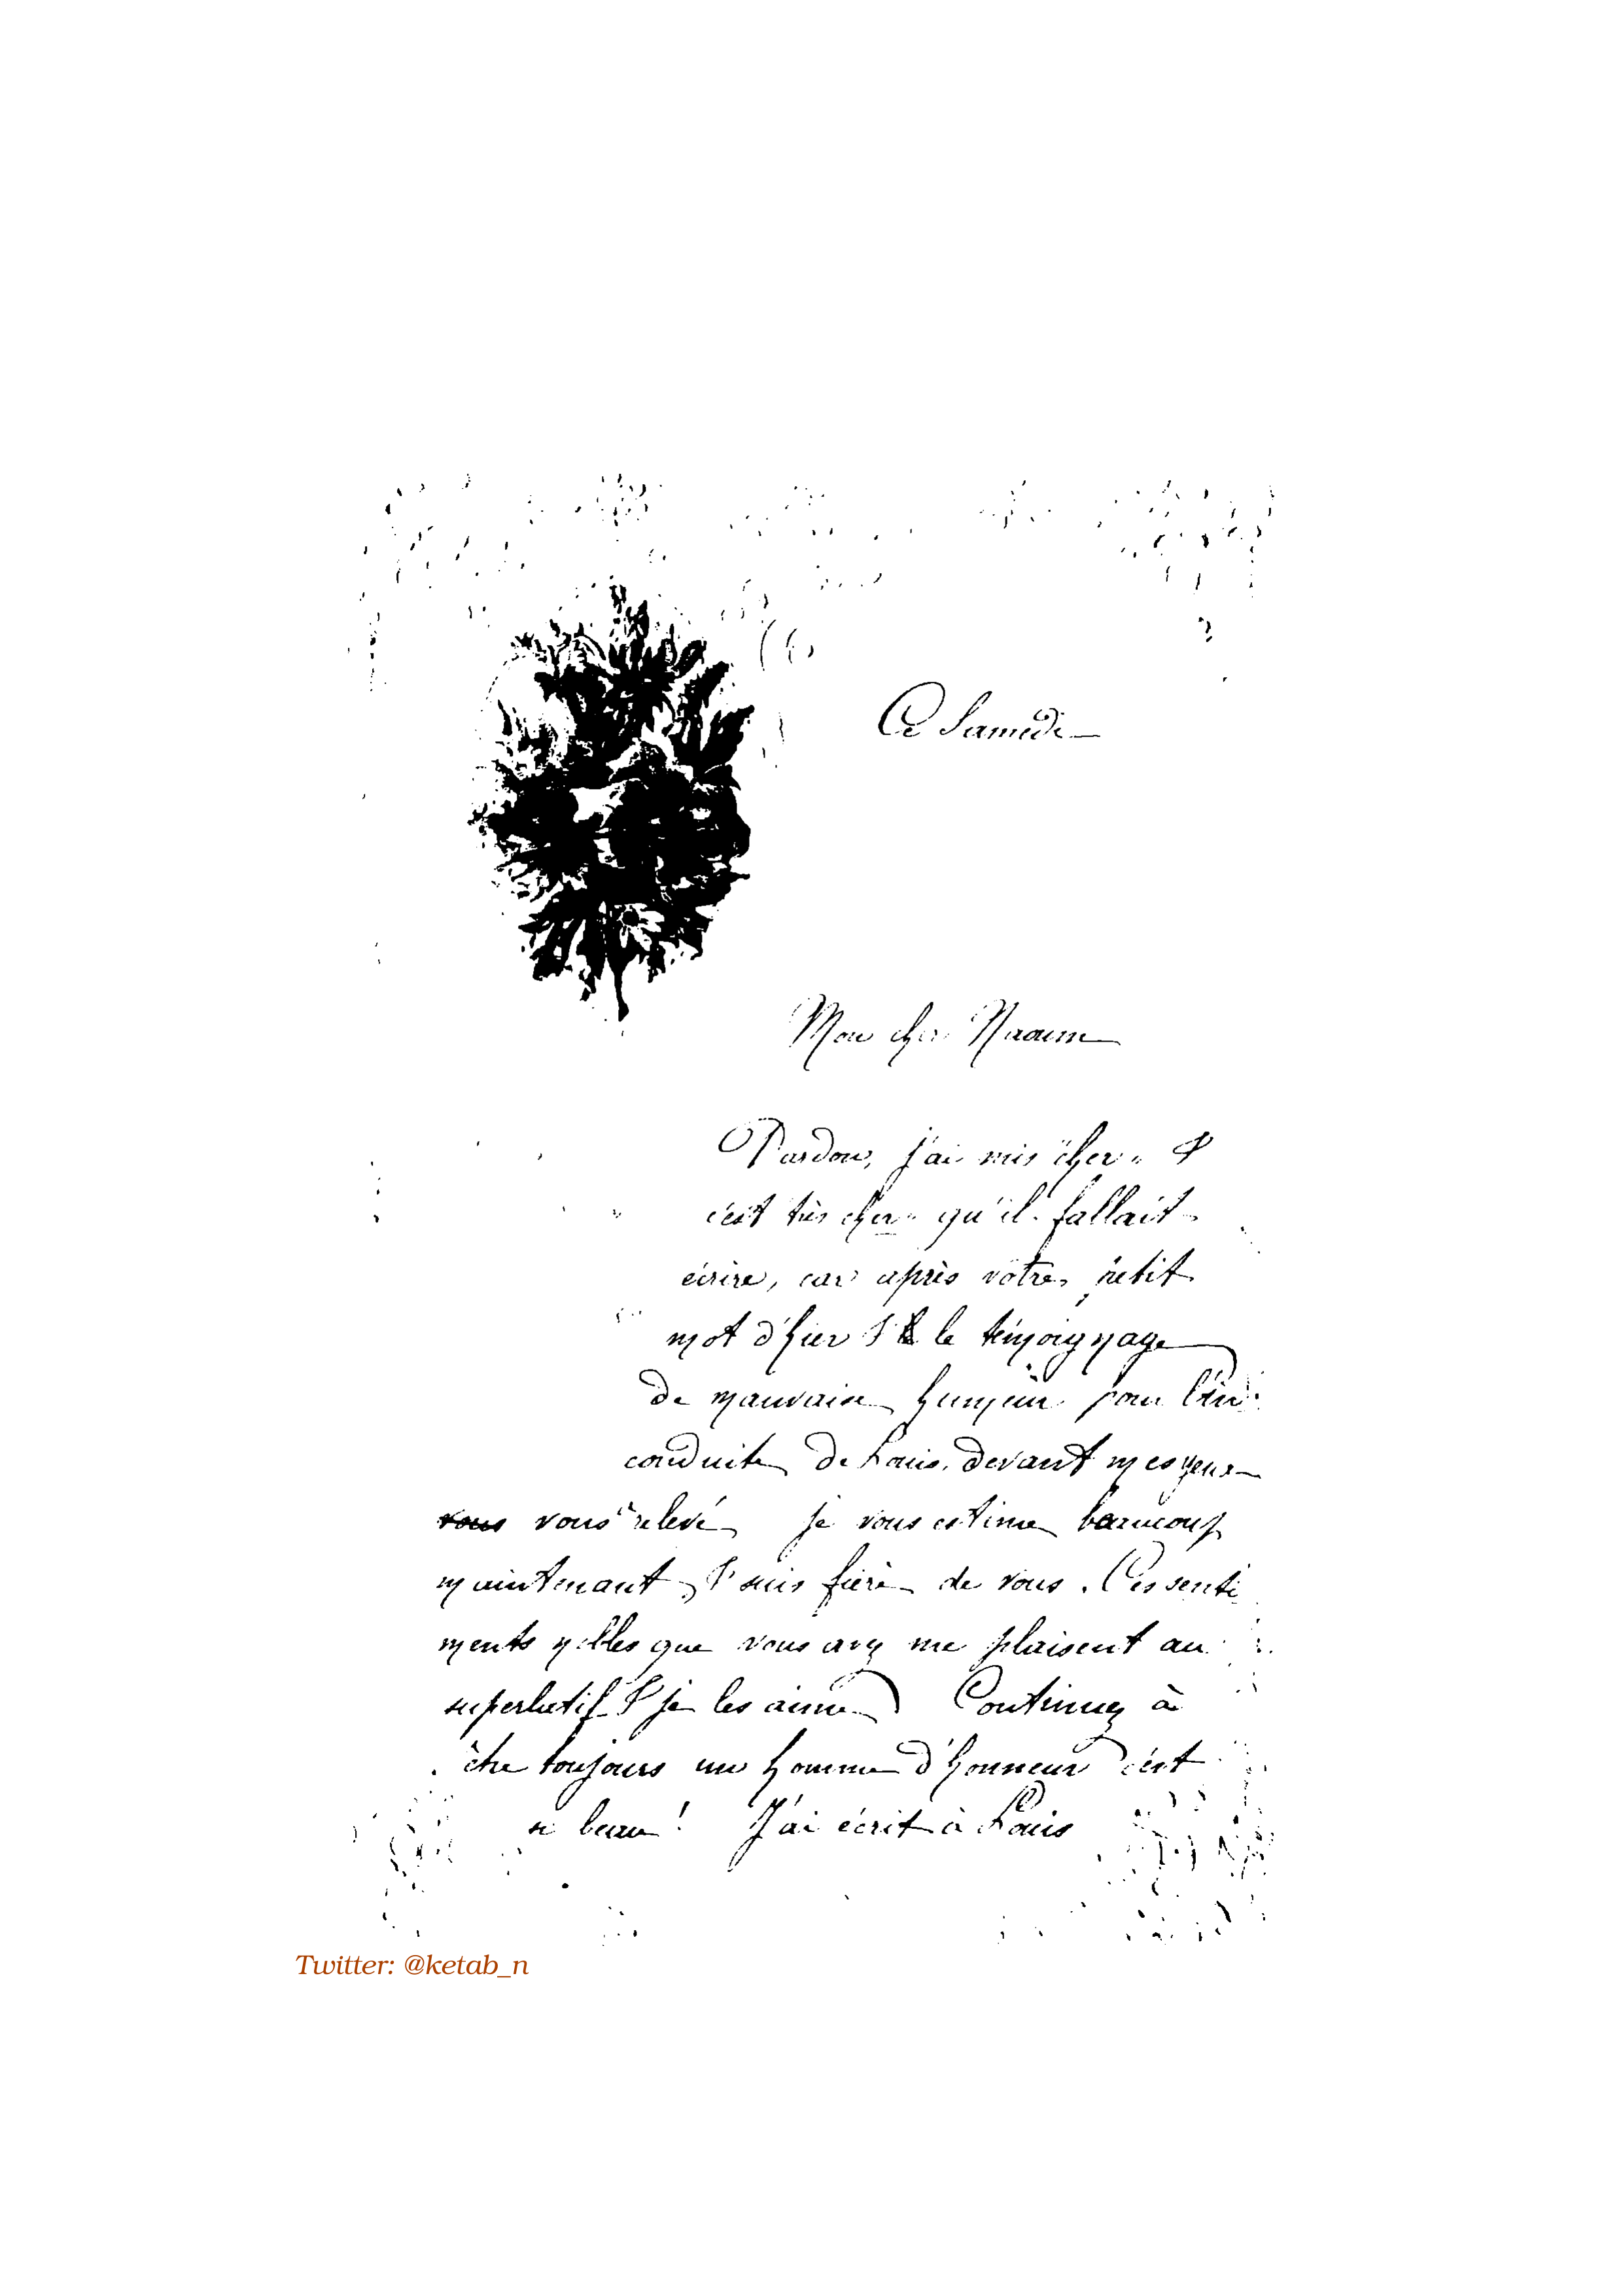 Ce Samedi
Mon cher Naoum
Pardon, j'ai mis "cher" &
c'est très cher" qu'il fallait
écrire, car après votre petit
mot d'hier & le témoignage
de mauvaise humeur pour l'in
conduite de Louis, devant mes yeux
vous vous relevé je vous estime beaucoup
maintenant, & suis fière de vous. Ces senti
ments nobles que vous avez me plaisent au
superlatif & je les aime Continuez à
être toujours un homme d'honneur c'est
si beau! J'ai écrit à Louis
Twitter: @ketab_n